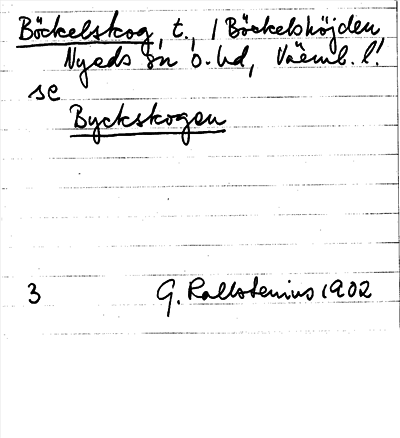 Böckelskog, t., / Böckelshöjden,
Nyeds sn ö. hd, Värml. l.
se
Byckskogen
3 G. Kallstenius 1902